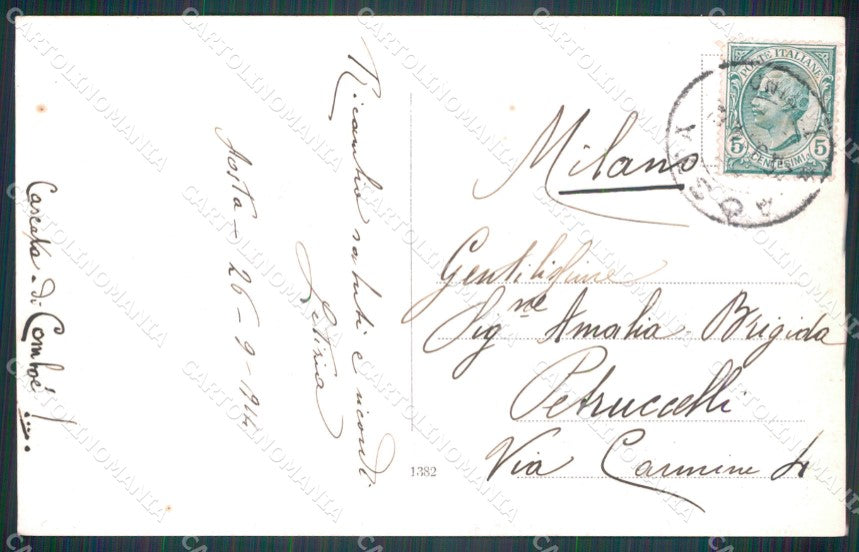 Ricambio saluti e ricordi
Letizia
Aosta - 26 - 9 - 1914
Cascata di Comboè!....
1382
POSTE ITALIANE
5 5
CENTESIMI
AOSTA
Milano
Gentilissime
Sig.ne Amalia - Brigida
Petruccelli
Via Carmine 4
CARTOLINOMANIA